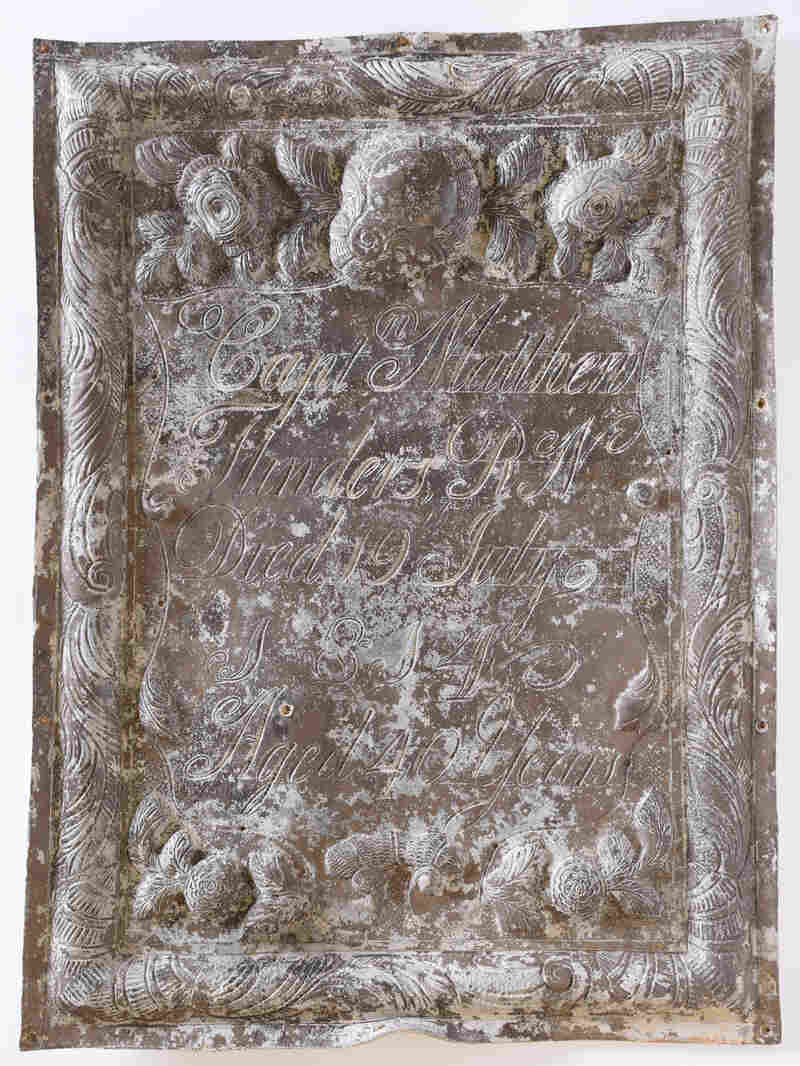 Capt.ⁿ Matthew
Flinders, R.N.
Died 19 July
1814
Aged 40 Years